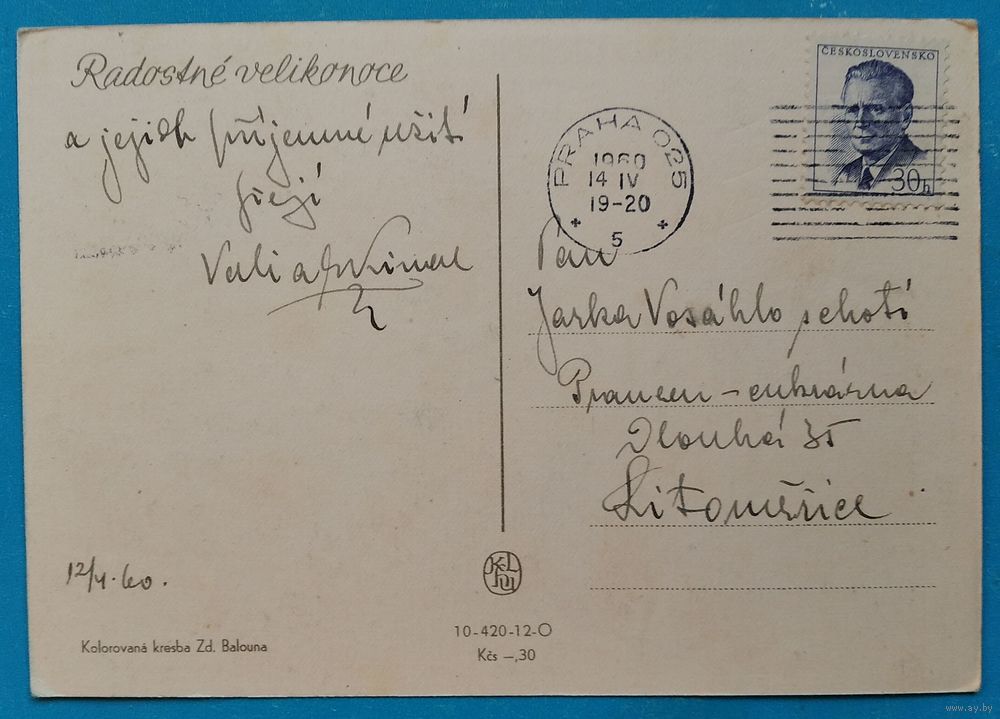 Radostné velikonoce
a jejich příjemné užití
přejí
Vali a
12/4. 60.
Kolorovaná kresba Zd. Balouna
10-420-12-O
Kčs –,30
ČESKOSLOVENSKO
30h
PRAHA 025
1960
14 IV
19-20
5
Pan
Jarka Vosáhlo s chotí
Pramen - cukrárna
Dlouhá 35
Litoměřice
www.ay.by